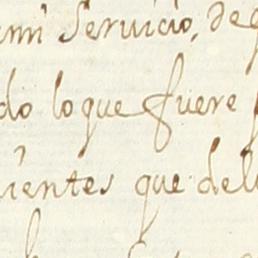 ami Servicio, de
do lo que fuere
ientes que del